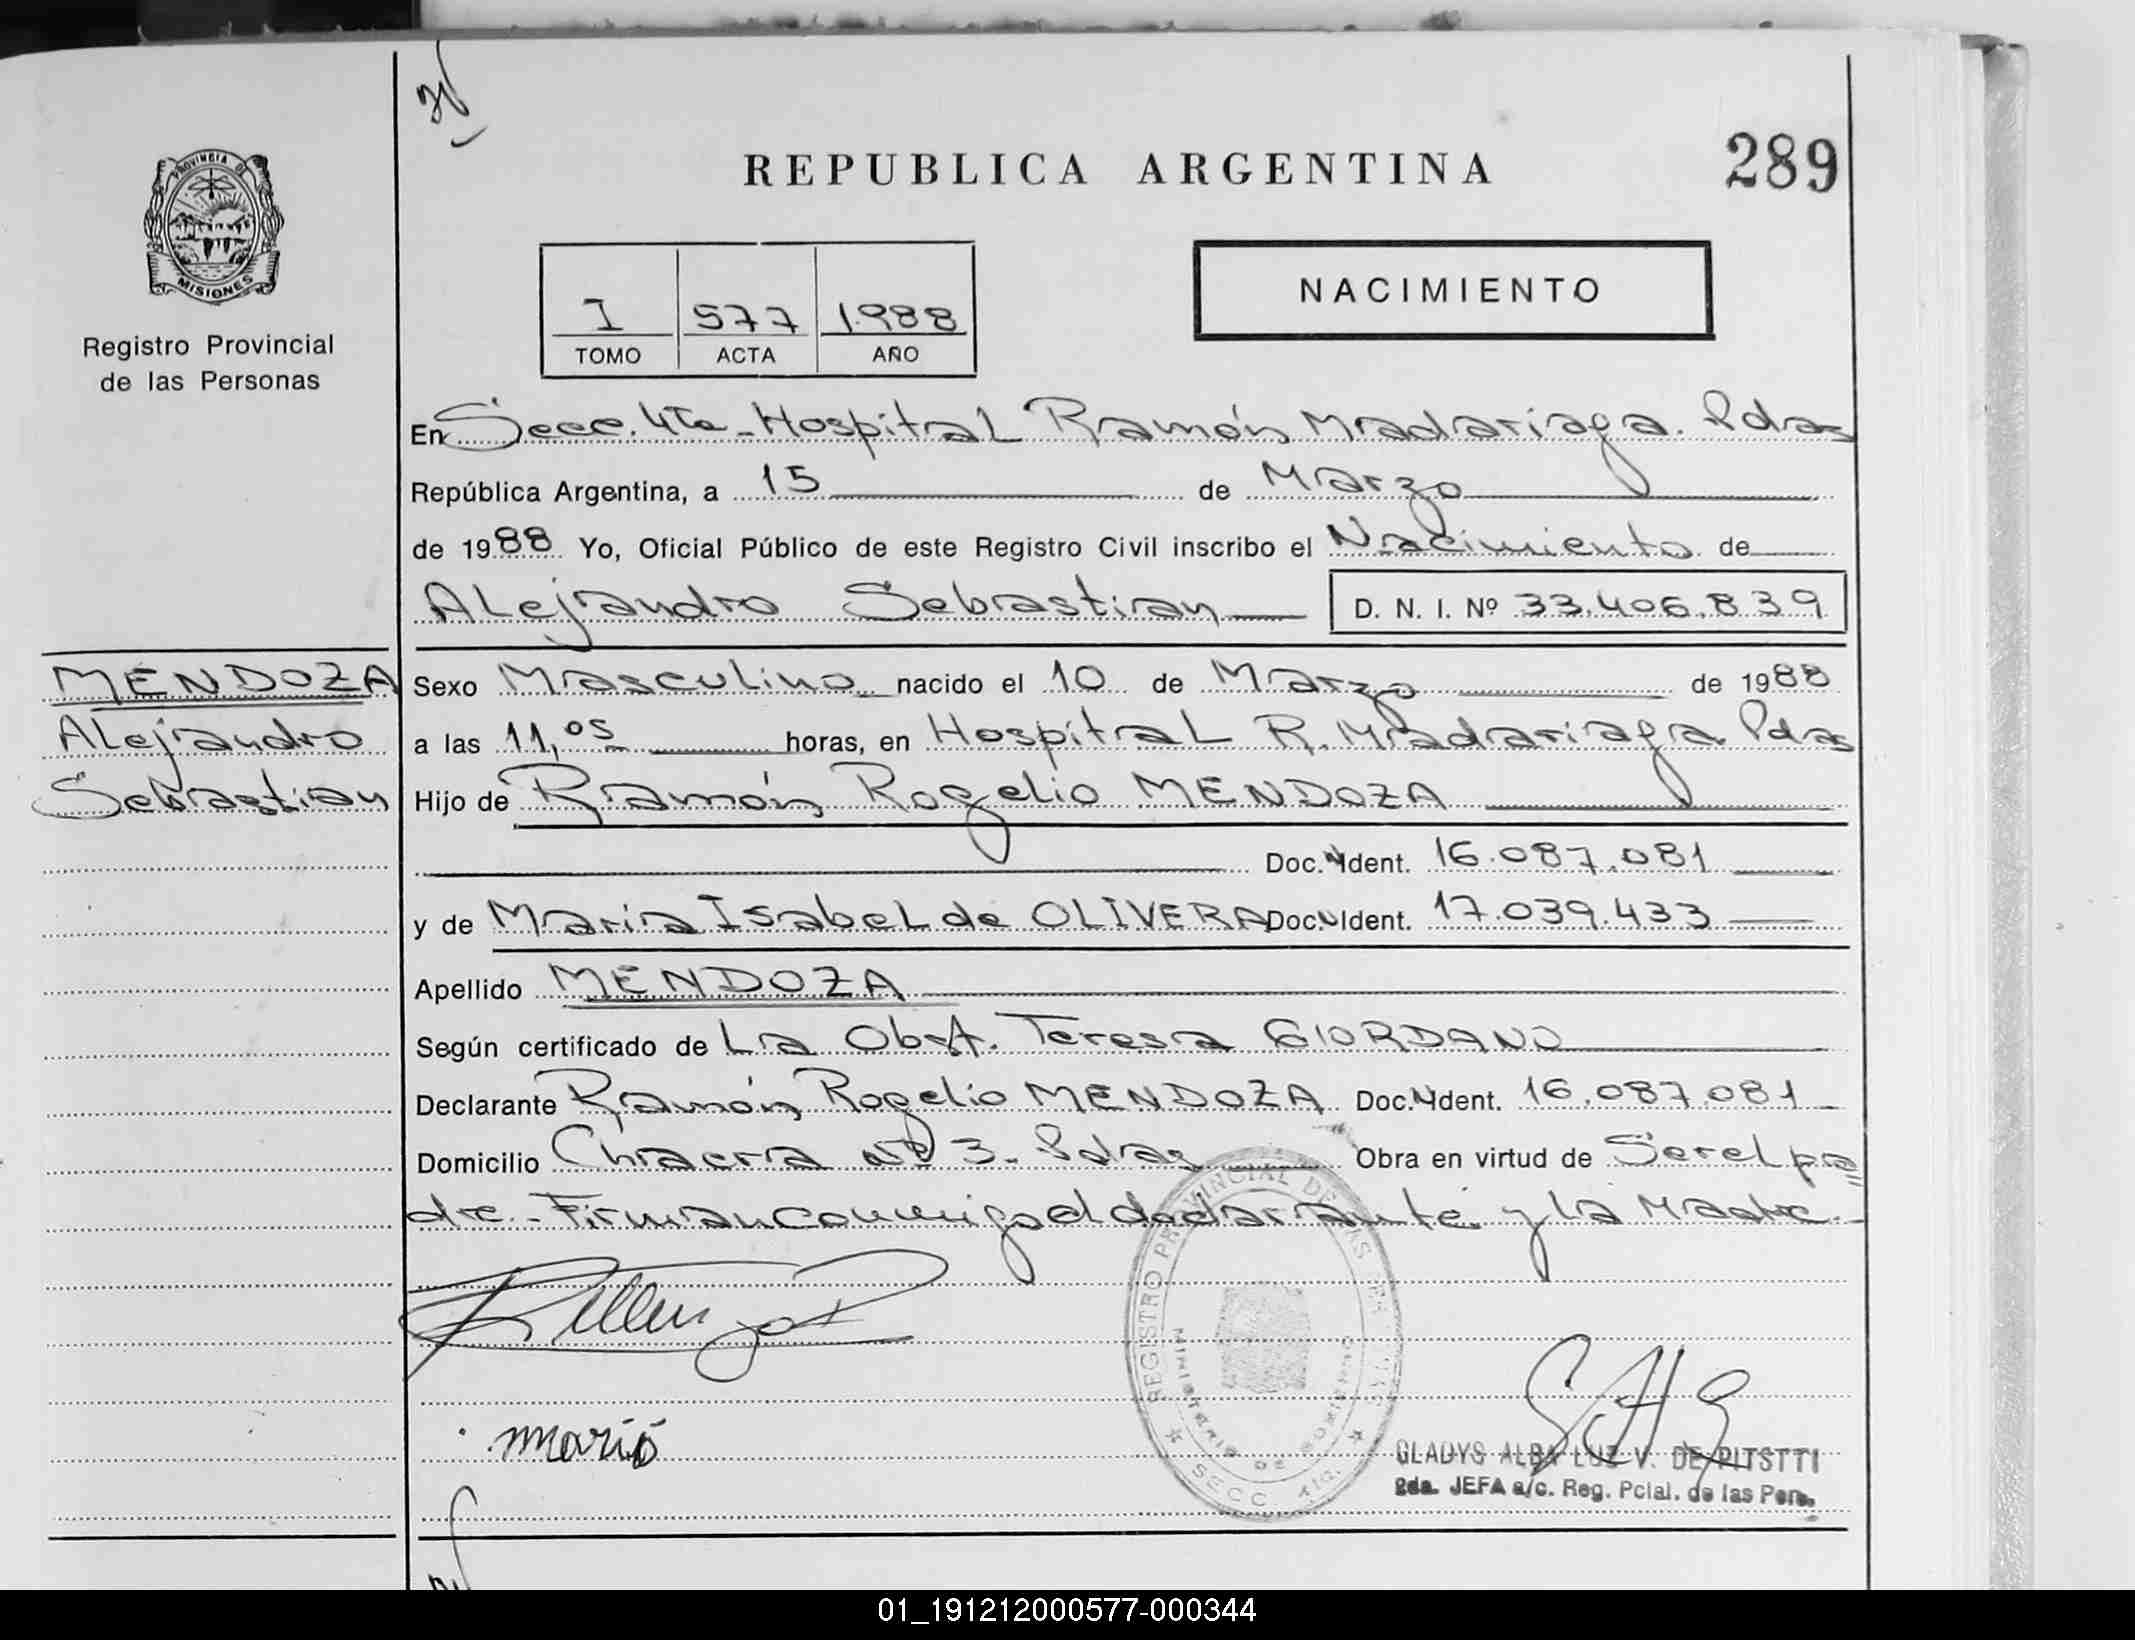 REPUBLICA ARGENTINA
289
PROVINCIA DE
MISIONES
Registro Provincial
de las Personas
I 577 1988
TOMO ACTA AÑO
NACIMIENTO
En Secc. 4Ta - Hospital Ramón Madariaga. Pdas
República Argentina, a 15 de Marzo
de 1988 Yo, Oficial Público de este Registro Civil inscribo el Nacimiento de
Alejandro Sebastian D. N. I. Nº 33.406.839
MENDOZA
Alejandro
Sebastian
Sexo Masculino nacido el 10 de Marzo de 1988
a las 11,05 horas, en Hospital R. Madariaga Pdas
Hijo de Ramón Rogelio MENDOZA
Doc. Ident. 16.087.081
y de Maria Isabel de OLIVERA Doc. Ident. 17.039.433
Apellido MENDOZA
Según certificado de La Obst. Teresa GIORDANO
Declarante Ramón Rogelio MENDOZA Doc. Ident. 16.087.081
Domicilio Chacra Nº 3. Pdas Obra en virtud de Ser el pa
dre - Firman conmigo el declarante y la Madre.-
REGISTRO PROVINCIAL DE LAS PERSONAS
MINISTERIO DE GOBIERNO
SECC 4ta.
maria
GLADYS ALBA LUZ V. DE PITSTTI
2da. JEFA a/c. Reg. Pcial. de las Pers.
01_191212000577-000344